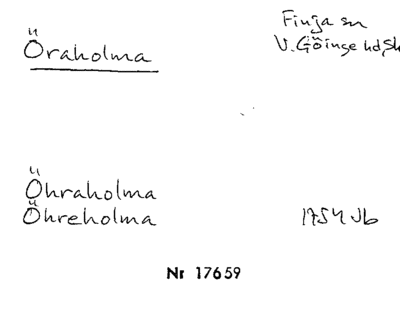 Öraholma
Finja sn
V. Göinge hd, Sk
Öhraholma
Öhreholma 1754 Jb
Nr 17659